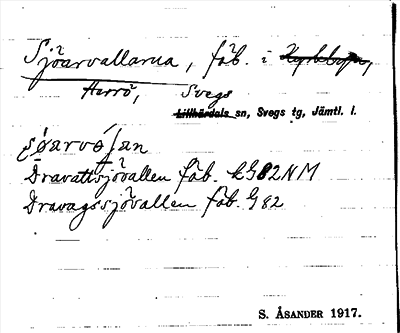 Sjöarvallarna, fäb. i Kyrkbyn,
Herrö, Svegs
Lillhärdals sn, Svegs tg, Jämtl. l.
Dravattsjövallen fäb. G82NM
Dravagssjövallen fäb. G82
S. ÅSANDER 1917.